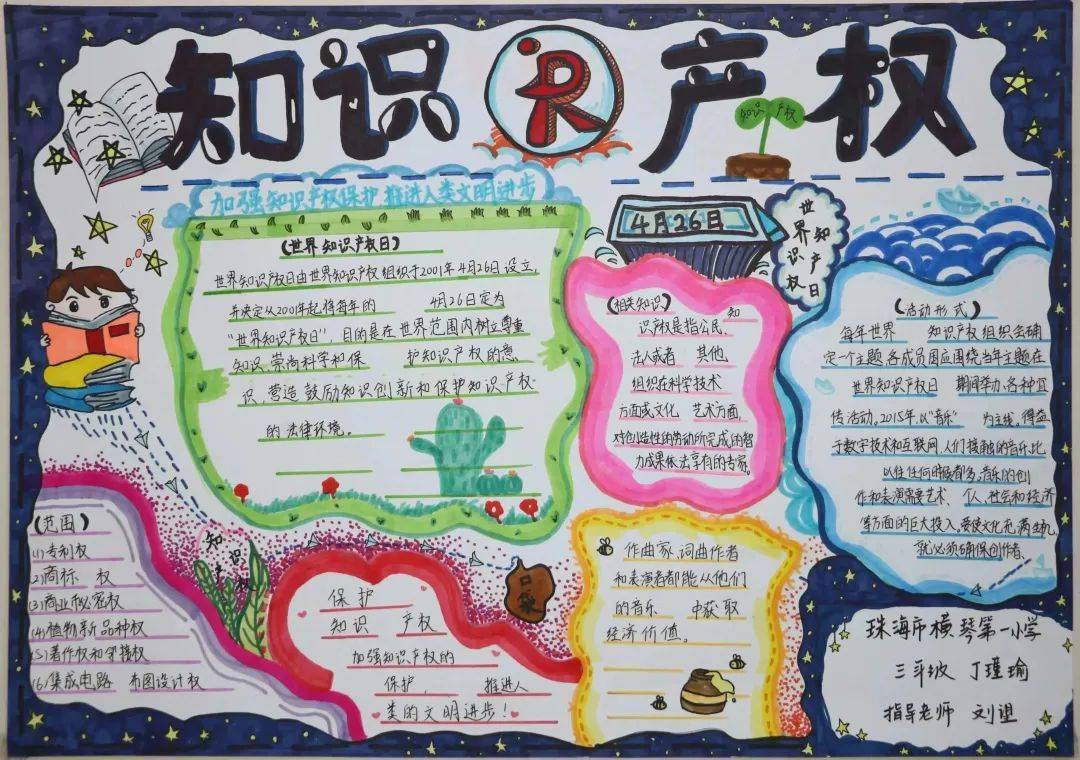 知识产权
R
知识产权
加强知识产权保护 推进人类文明进步
(世界知识产权日)
世界知识产权日由世界知识产权组织于2001年4月26日设立,
并决定从2001年起将每年的 4月26日定为
“世界知识产权日”,目的是在世界范围内树立尊重
知识,崇尚科学和保 护知识产权的意
识,营造鼓励知识创新和保护知识产权
的法律环境。
4月26日
世界知识产权日
(相关知识) 知
识产权是指公民、
法人或者 其他
组织在科学技术
方面或文化 艺术方面,
对创造性的劳动所完成的智
力成果依法享有的专家。
(活动形式)
每年世界 知识产权组织会确
定一个主题,各成员国应围绕当年主题在
世界知识产权日 期间举办各种宣
传活动。2015年,以“音乐” 为主线。得益
于数字技术和互联网,人们接触的音乐比
以往任何时候都多,音乐的创
作和表演需要艺术、个人、社会和经济
等方面的巨大投入,要使文化充满生机,
就必须确保创作者、
(范围)
(1)专利权
(2)商标 权
(3)商业秘密权
(4)植物新品种权
(5)著作权和邻接权
(6)集成电路 布图设计权
知识产权
保护
知识 产权
加强知识产权的
保护, 推进人
类的文明进步!
口袋
作曲家、词曲作者
和表演者都能从他们
的音乐 中获取
经济价值。
珠海市横琴第一小学
三年级 丁瑾瑜
指导老师 刘望